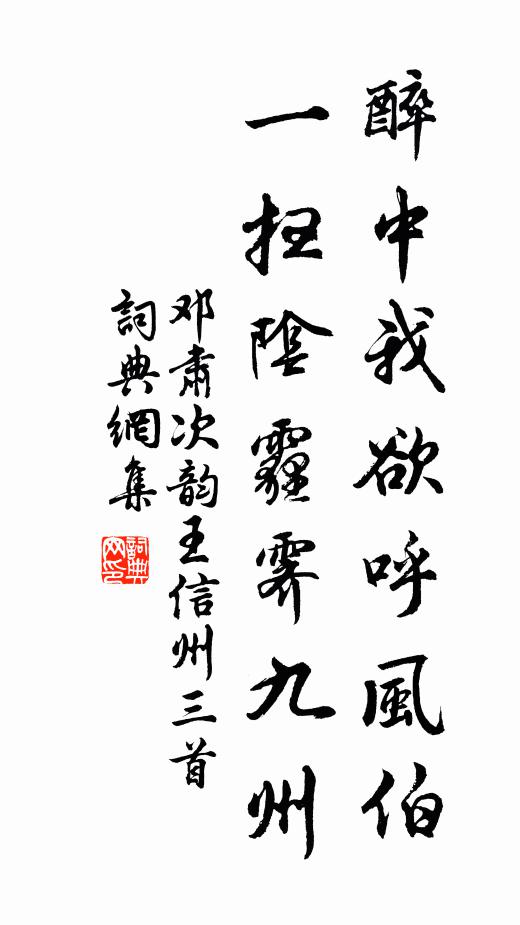 醉中我欲呼風伯
一扫陰霾霽九州
邓肅次韵王信州三首
詞典網集
詞典网印